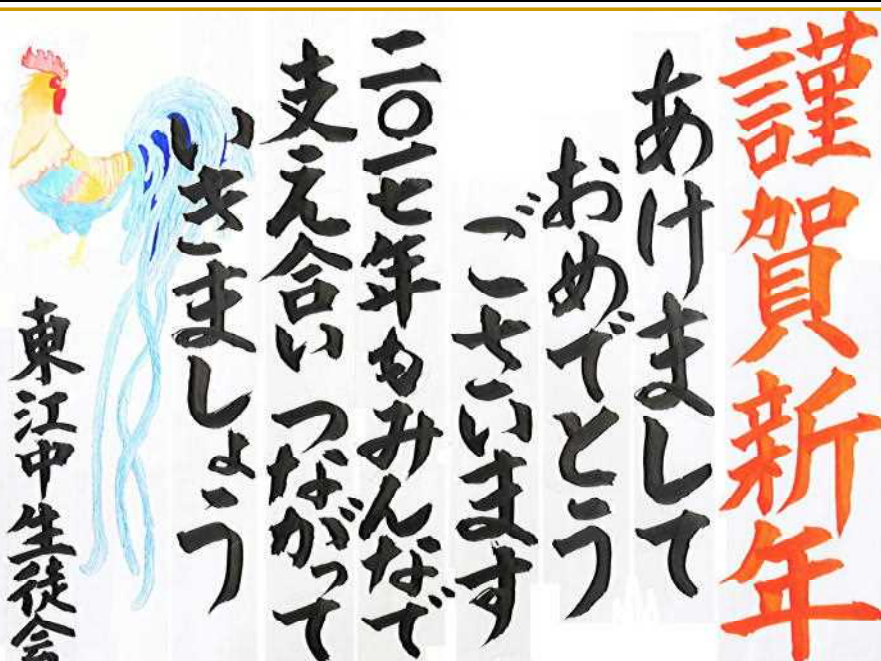 謹賀新年
あけまして
おめでとう
ございます
二〇一七年もみんなで
支え合いつながって
いきましょう
東江中生徒会